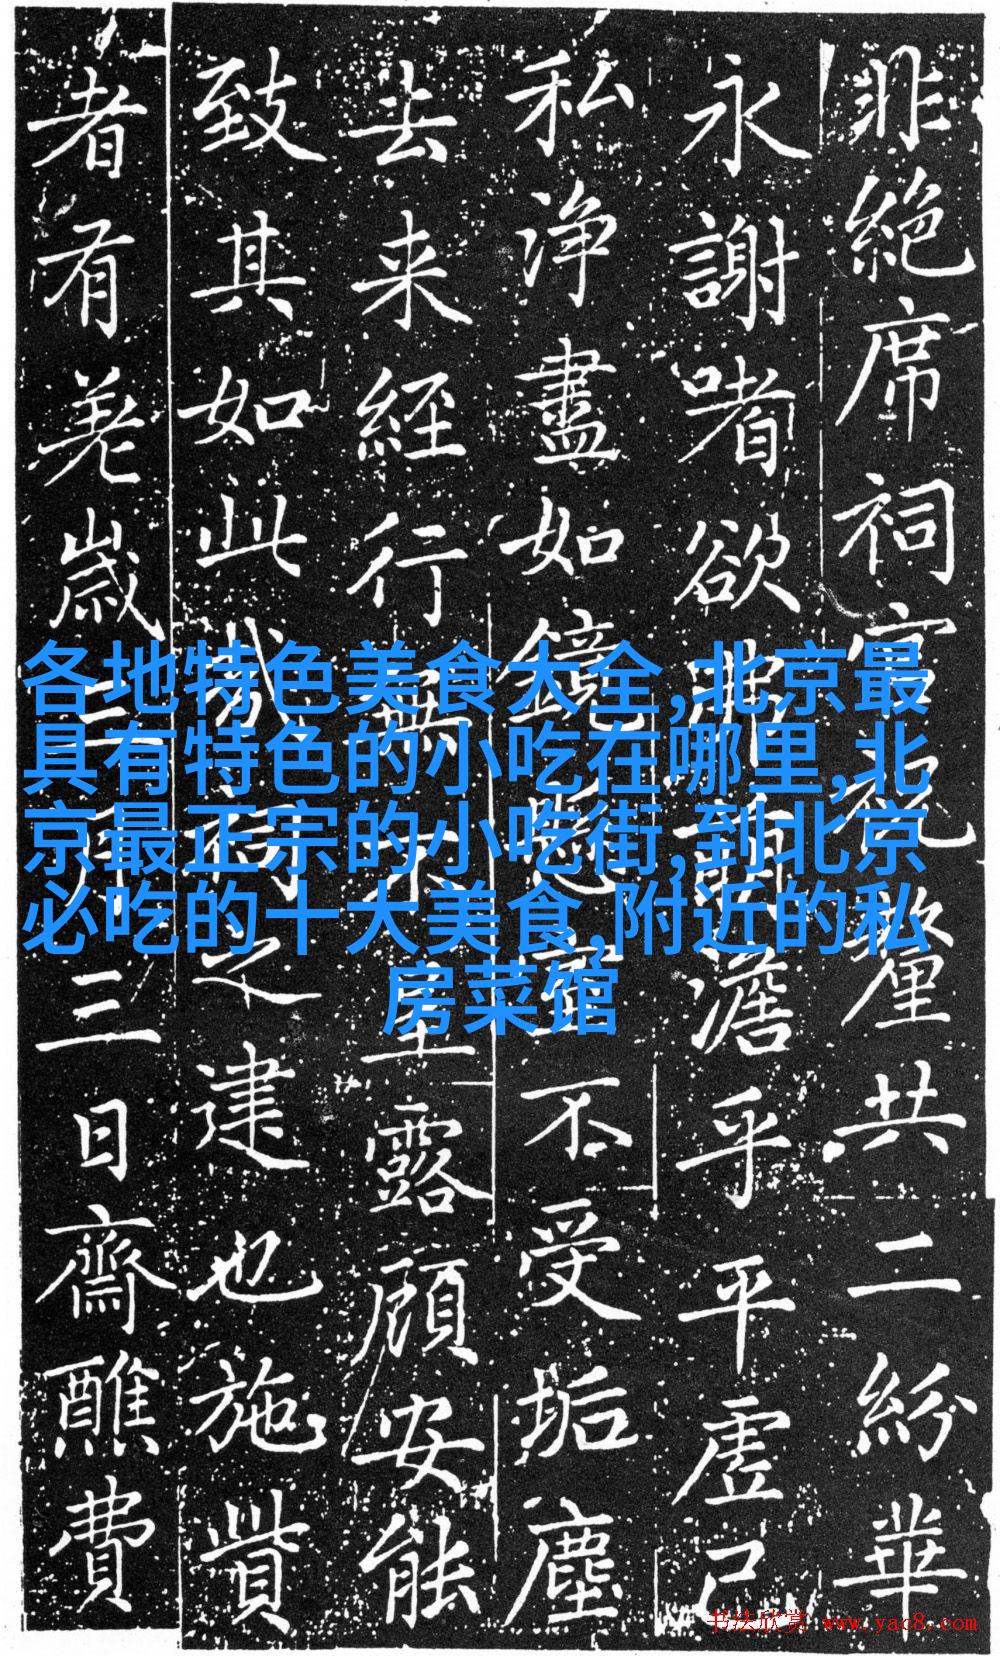 非絶席祠官祝釐共二紛華
永謝嗜欲非謂澹乎平虚己
私净盡如鏡懸空不受垢塵
去来経行無不呈露顧安能
致其如此哉祠之建也施貲
者有羙歳三月三日齋醮費
各地特色美食大全,北京最
具有特色的小吃在哪里,北
京最正宗的小吃街,到北京
必吃的十大美食,附近的私
房菜馆
书法欣赏 www.yac8.com